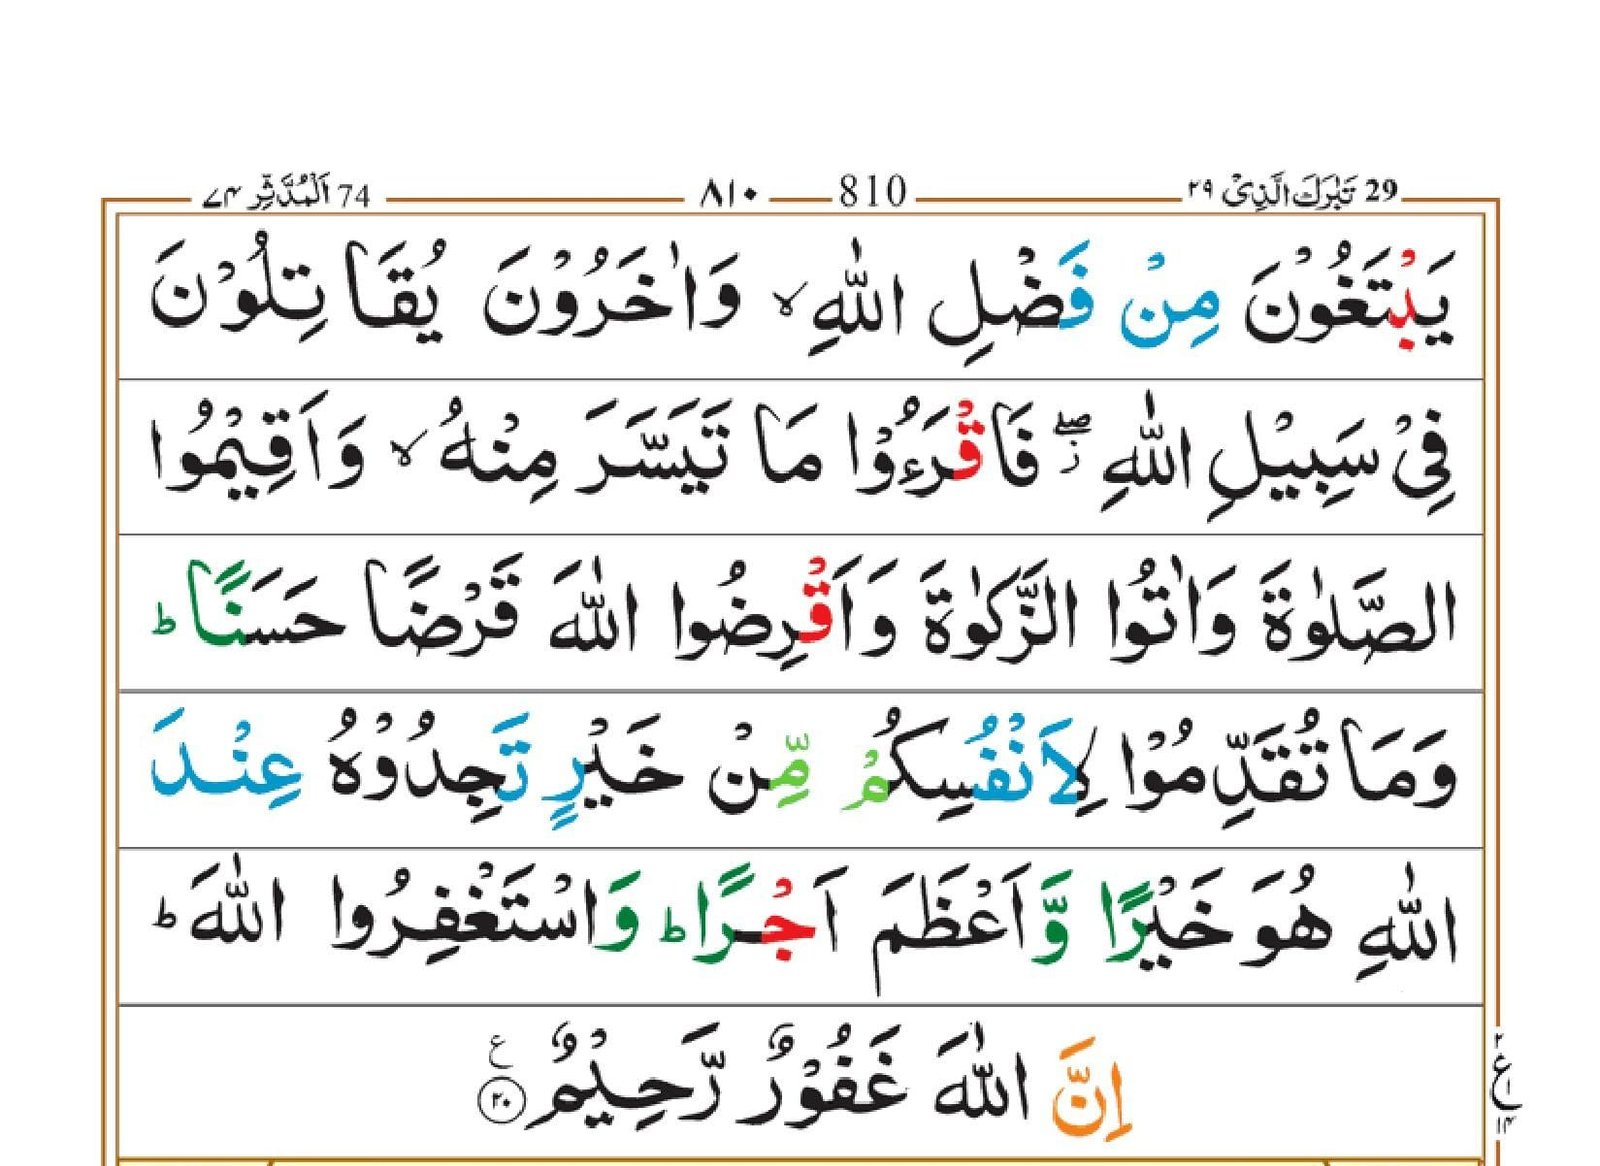 29 تَبٰرَكَ الَّذِیْ ۲۹ 810 ۸۱۰ 74 اَلْمُدَّثِّر ۷۴
یَبْتَغُوْنَ مِنْ فَضْلِ اللّٰهِ ۙ وَاٰخَرُوْنَ یُقَاتِلُوْنَ
فِیْ سَبِیْلِ اللّٰهِ ۖؗ فَاقْرَءُوْا مَا تَیَسَّرَ مِنْهُ ۙ وَاَقِیْمُوا
الصَّلٰوةَ وَاٰتُوا الزَّكٰوةَ وَاَقْرِضُوا اللّٰهَ قَرْضًا حَسَنًا ؕ
وَمَا تُقَدِّمُوْا لِاَنْفُسِكُمْ مِّنْ خَیْرٍ تَجِدُوْهُ عِنْدَ
اللّٰهِ هُوَ خَیْرًا وَّاَعْظَمَ اَجْرًا ؕ وَاسْتَغْفِرُوا اللّٰهَ ؕ
اِنَّ اللّٰهَ غَفُوْرٌ رَّحِیْمٌ ع ۲۰
۲ ع ۱ ۱۴